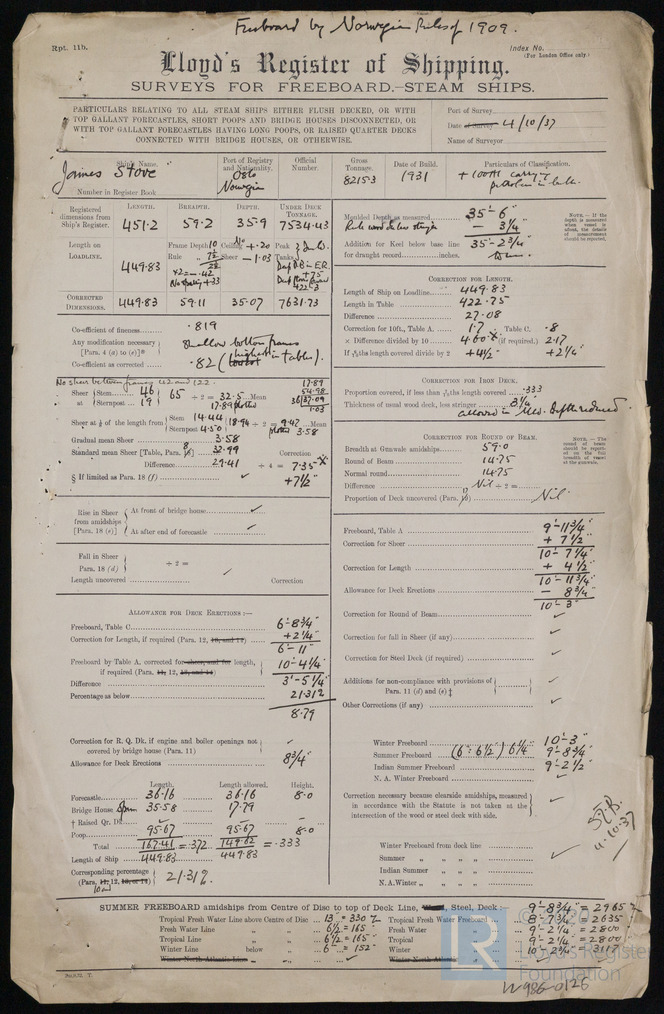 Freeboard by Norwegian Rules of 1909.
Rpt. 11b.
Index No.
(For London Office only)
Lloyd's Register of Shipping.
SURVEYS FOR FREEBOARD.—STEAM SHIPS.
PARTICULARS RELATING TO ALL STEAM SHIPS EITHER FLUSH DECKED, OR WITH
TOP GALLANT FORECASTLES, SHORT POOPS AND BRIDGE HOUSES DISCONNECTED, OR
WITH TOP GALLANT FORECASTLES HAVING LONG POOPS, OR RAISED QUARTER DECKS
CONNECTED WITH BRIDGE HOUSES, OR OTHERWISE.
Port of Survey
Date of Survey 4/10/37
Name of Surveyor
Ship's Name. Port of Registry and Nationality. Official Number. Gross Tonnage. Date of Build. Particulars of Classification.
James Stove Oslo Norwegian 8215.3 1931 +100A1 carrying petroleum in bulk.
Number in Register Book
Registered dimensions from Ship's Register. LENGTH. BREADTH. DEPTH. UNDER DECK TONNAGE.
451.2 59.2 35.9 7534.43
Length on LOADLINE. 449.83
Frame Depth 10 Ceiling 4.20 Peak Tanks
Rule 7½ Sheer -1.03
CORRECTED DIMENSIONS. 449.83 59.11 35.07 7631.73
Moulded Depth as measured 35'-6"
- 3¼"
Addition for Keel below base line 35'-2¾"
for draught record inches.
NOTE.—If the depth is measured when vessel is afloat, the details of measurement should be reported.
Co-efficient of fineness .819
Any modification necessary Shallow bottom frames
[Para. 4 (a) to (e)]*
Co-efficient as corrected .82 (highest in tables).
CORRECTION FOR LENGTH.
Length of Ship on Loadline 449.83
Length in Table 422.75
Difference 27.08
Correction for 10ft., Table A. 1.7 Table C. .8
× Difference divided by 10 4.60 (if required.) 2.17
If 6/10ths length covered divide by 2 +4½" +2¼"
No sheer between frames 62 and 122.
Sheer at Stem 46 65 ÷ 2 = 32.5 Mean
Sternpost 19 17.89 plotted
17.89
54.98
36)37.09
1.03
Sheer at ⅛ of the length from Stem 14.44 18.94 ÷ 2 = 9.47 Mean
Sternpost 4.50 plotted 3.58
Gradual mean Sheer 3.58
Standard mean Sheer [Table, Para. 18] 32.99
Correction
Difference 29.41 ÷ 4 = 7.35
§ If limited as Para. 18 (f) +7½"
CORRECTION FOR IRON DECK.
Proportion covered, if less than 7/10ths length covered .333
Thickness of usual wood deck, less stringer 3¼"
allowed in Mld. Depth reduced
CORRECTION FOR ROUND OF BEAM.
Breadth at Gunwale amidships 59.0
Round of Beam 14.75
Normal round 14.75
Difference Nil ÷ 2 =
Proportion of Deck uncovered (Para. 19) Nil
NOTE.—The round of beam should be reported on the full breadth of vessel at the gunwale.
Rise in Sheer from amidships [Para. 18 (e)]
At front of bridge house
At after end of forecastle
Fall in Sheer
Para. 18 (d) ÷ 2 =
Length uncovered Correction
Freeboard, Table A 9'-11¾"
Correction for Sheer + 7½"
10'- 7¼"
Correction for Length + 4½"
10'-11¾"
Allowance for Deck Erections - 8¾"
10'-3"
Correction for Round of Beam
Correction for fall in Sheer (if any)
Correction for Steel Deck (if required)
Additions for non-compliance with provisions of
Para. 11 (d) and (e) ‡
Other Corrections (if any)
ALLOWANCE FOR DECK ERECTIONS:—
Freeboard, Table C 6'-8¾"
Correction for Length, if required (Para. 12, 13, and 14) +2¼"
6'-11"
Freeboard by Table A, corrected for sheer, and for length, 10'-4¼"
if required (Para. 11, 12, 13, and 14)
Difference 3'-5¼"
Percentage as below 21.31%
8.79
Correction for R. Q. Dk. if engine and boiler openings not
covered by bridge house (Para. 11)
Allowance for Deck Erections 8¾"
Length. Length allowed. Height.
Forecastle 36.16 36.16 8.0
Bridge House 35.58 17.79
† Raised Qr. Dk.
Poop 95.67 95.67 8.0
Total 167.41 = .372 149.62 = .333
Length of Ship 449.83 449.83
Corresponding percentage 21.31%
Winter Freeboard 10'-3"
Summer Freeboard (6": 6½") 6¼" 9'-8¾"
Indian Summer Freeboard 9'-2½"
N. A. Winter Freeboard
Correction necessary because clearside amidships, measured
in accordance with the Statute is not taken at the
intersection of the wood or steel deck with side.
Winter Freeboard from deck line
Summer " " " "
Indian Summer " " "
N. A. Winter " " "
4.10.37
SUMMER FREEBOARD amidships from Centre of Disc to top of Deck Line, Wood, Steel, Deck: 9'-8¾" = 2965
Tropical Fresh Water Line above Centre of Disc 13" = 330 Tropical Fresh Water Freeboard 8'-7¾" = 2635
Fresh Water Line " " 6½" = 165 Fresh Water " 9'-2¼" = 2800
Tropical Line " " 6½" = 165 Tropical " 9'-2¼" = 2800
Winter Line below " 6" = 152 Winter " 10'-2¾" 3117
Winter North Atlantic Line " Winter North Atlantic "
LR
© 2020
Lloyd's Register
Foundation
W986-0126